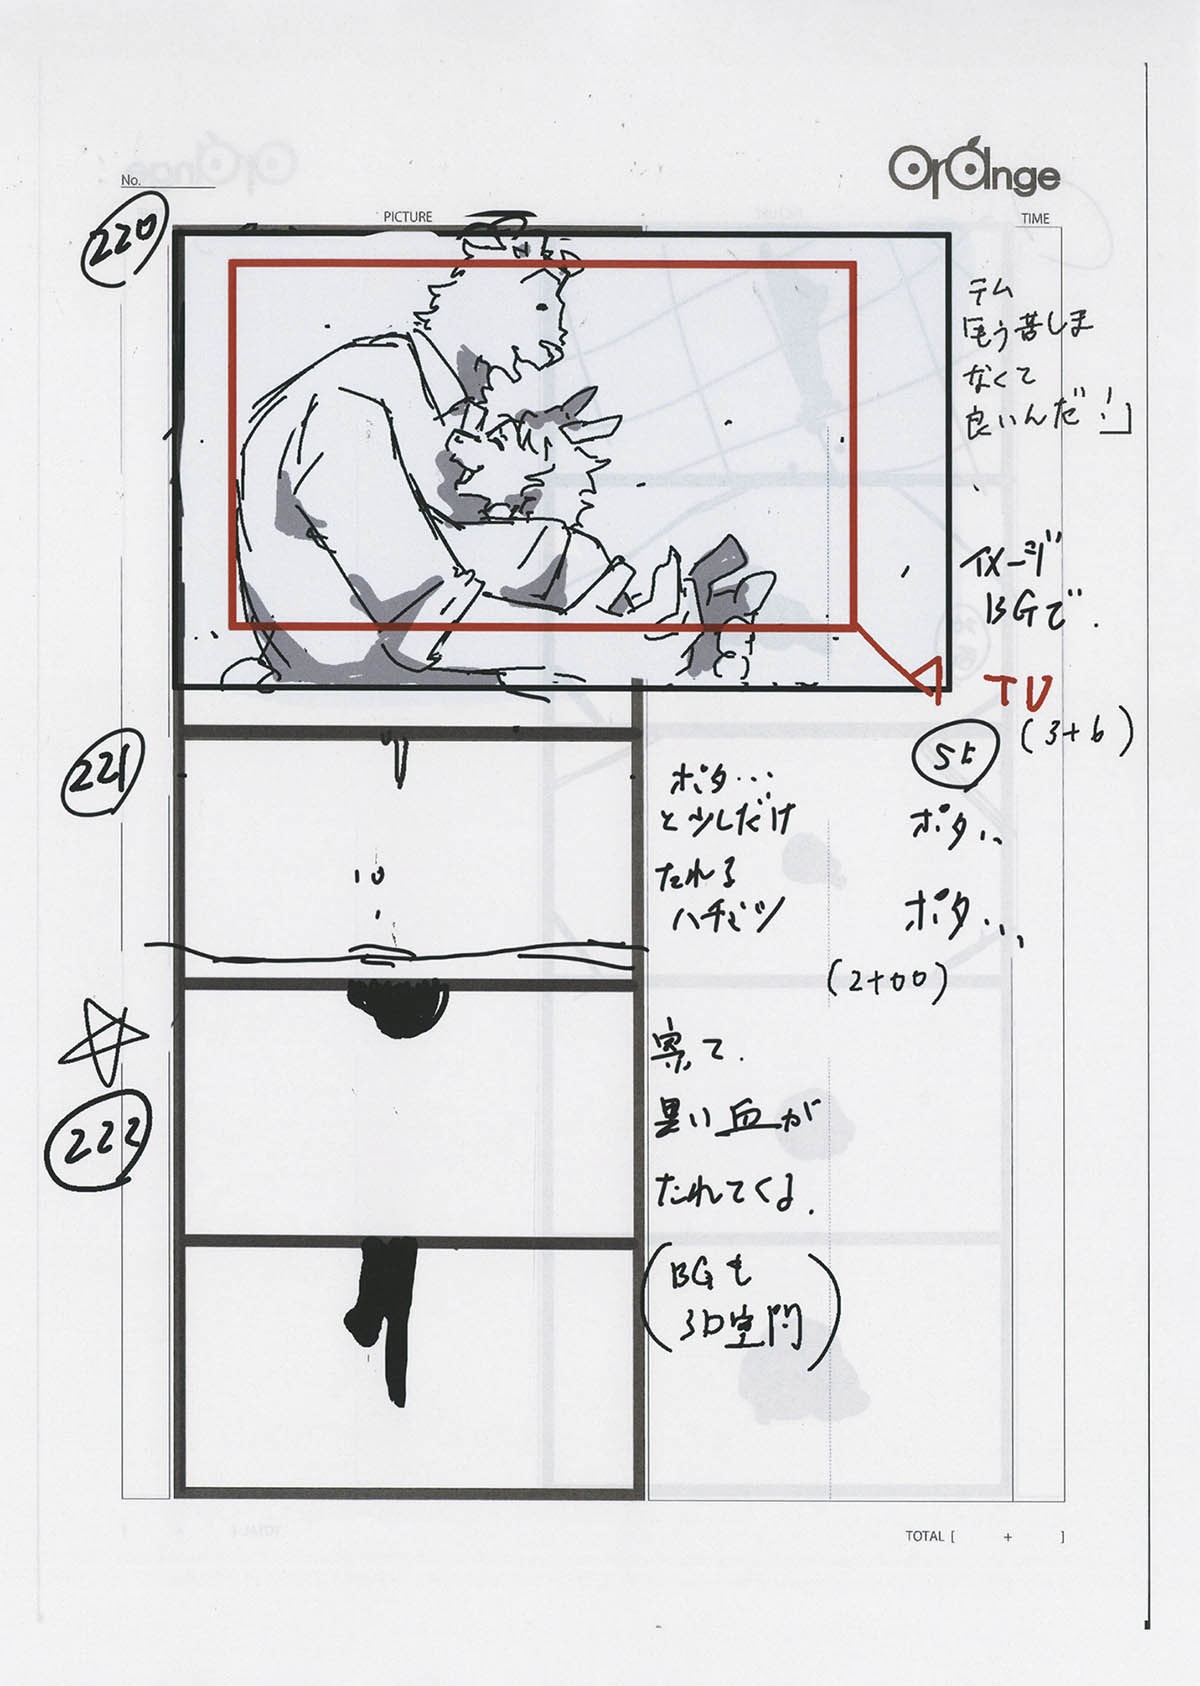 Orange
No.
PICTURE
TIME
220
テム
「もう苦しま
なくて
良いんだ…!」
イメージ
BGで.
TU
(3+6)
221
ポタ…
と少しだけ
たれる
ハチミツ
SE
ポタ…
ポタ…
(2+00)
222
寄て.
黒い血が
たれてくる.
(BGも
3D空間)
TOTAL [ + ]